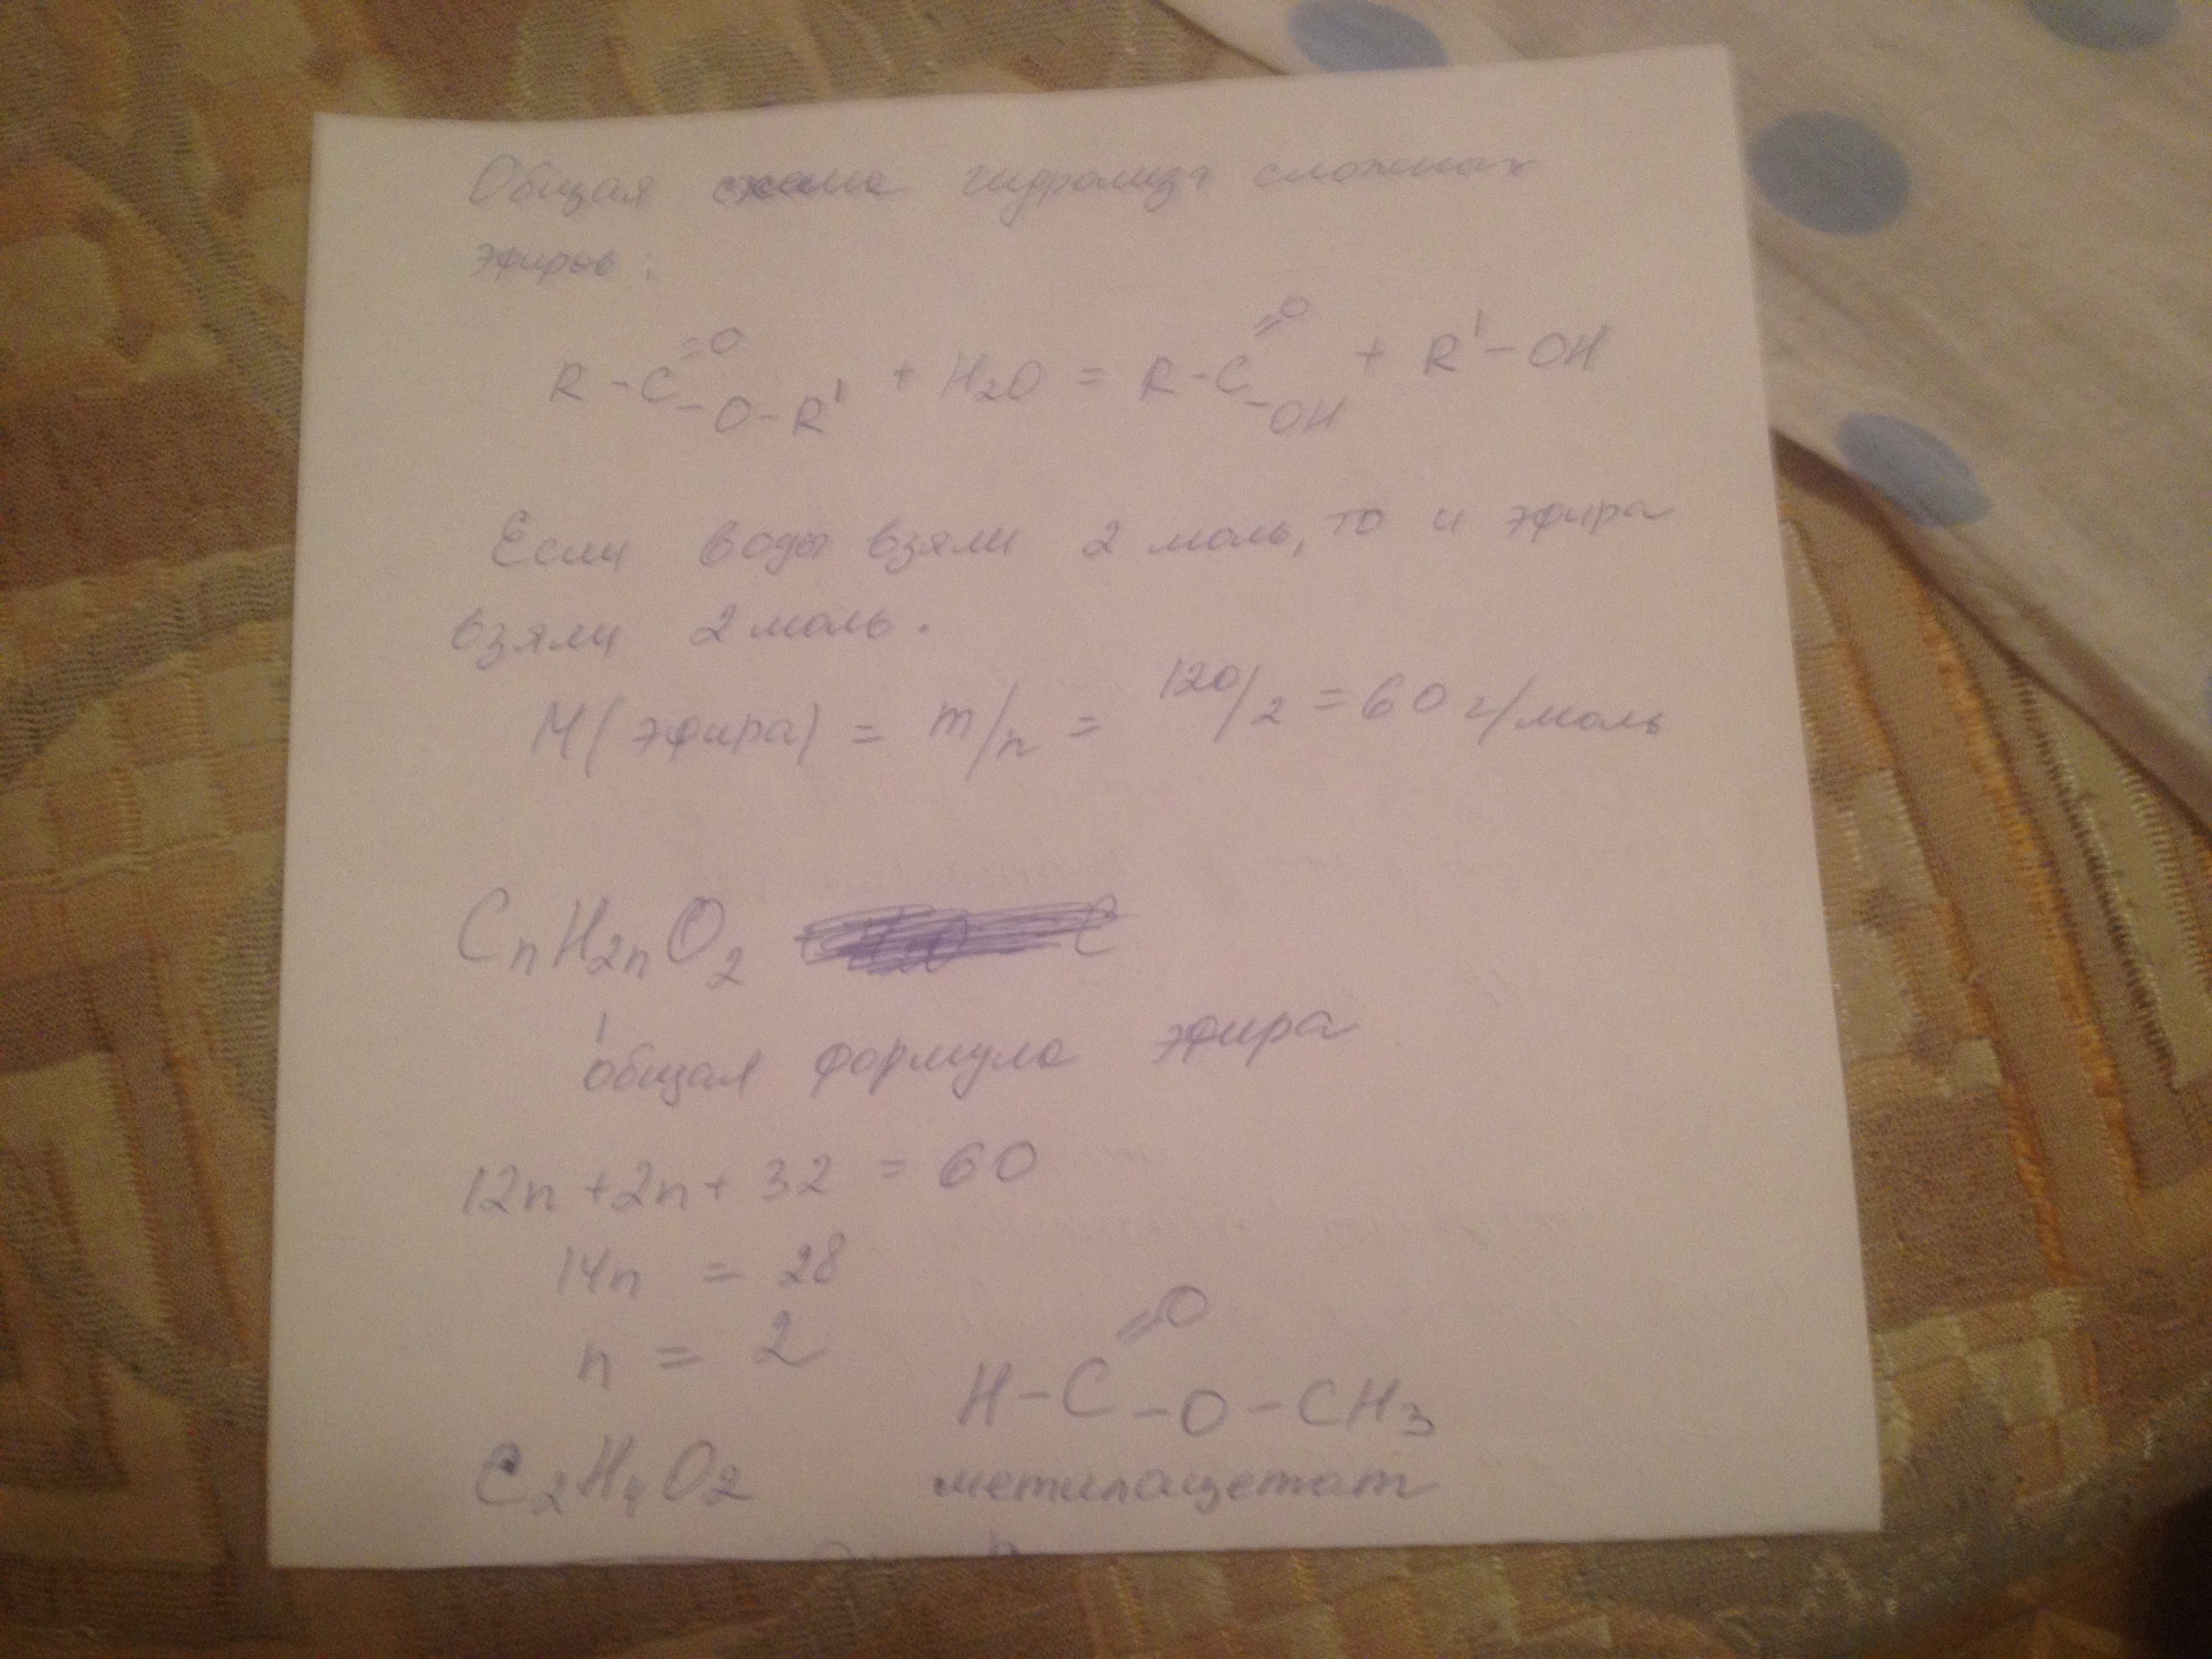 Общая схема гидролиза сложных
эфиров:
R - C =O - O - R' + H2O = R - C =O - OH + R' - OH
Если воды взяли 2 моль, то и эфира
взяли 2 моль.
M(эфира) = m/n = 120/2 = 60 г/моль
CnH2nO2
общая формула эфира
12n + 2n + 32 = 60
14n = 28
n = 2
H - C =O - O - CH3
C2H4O2 метилацетат